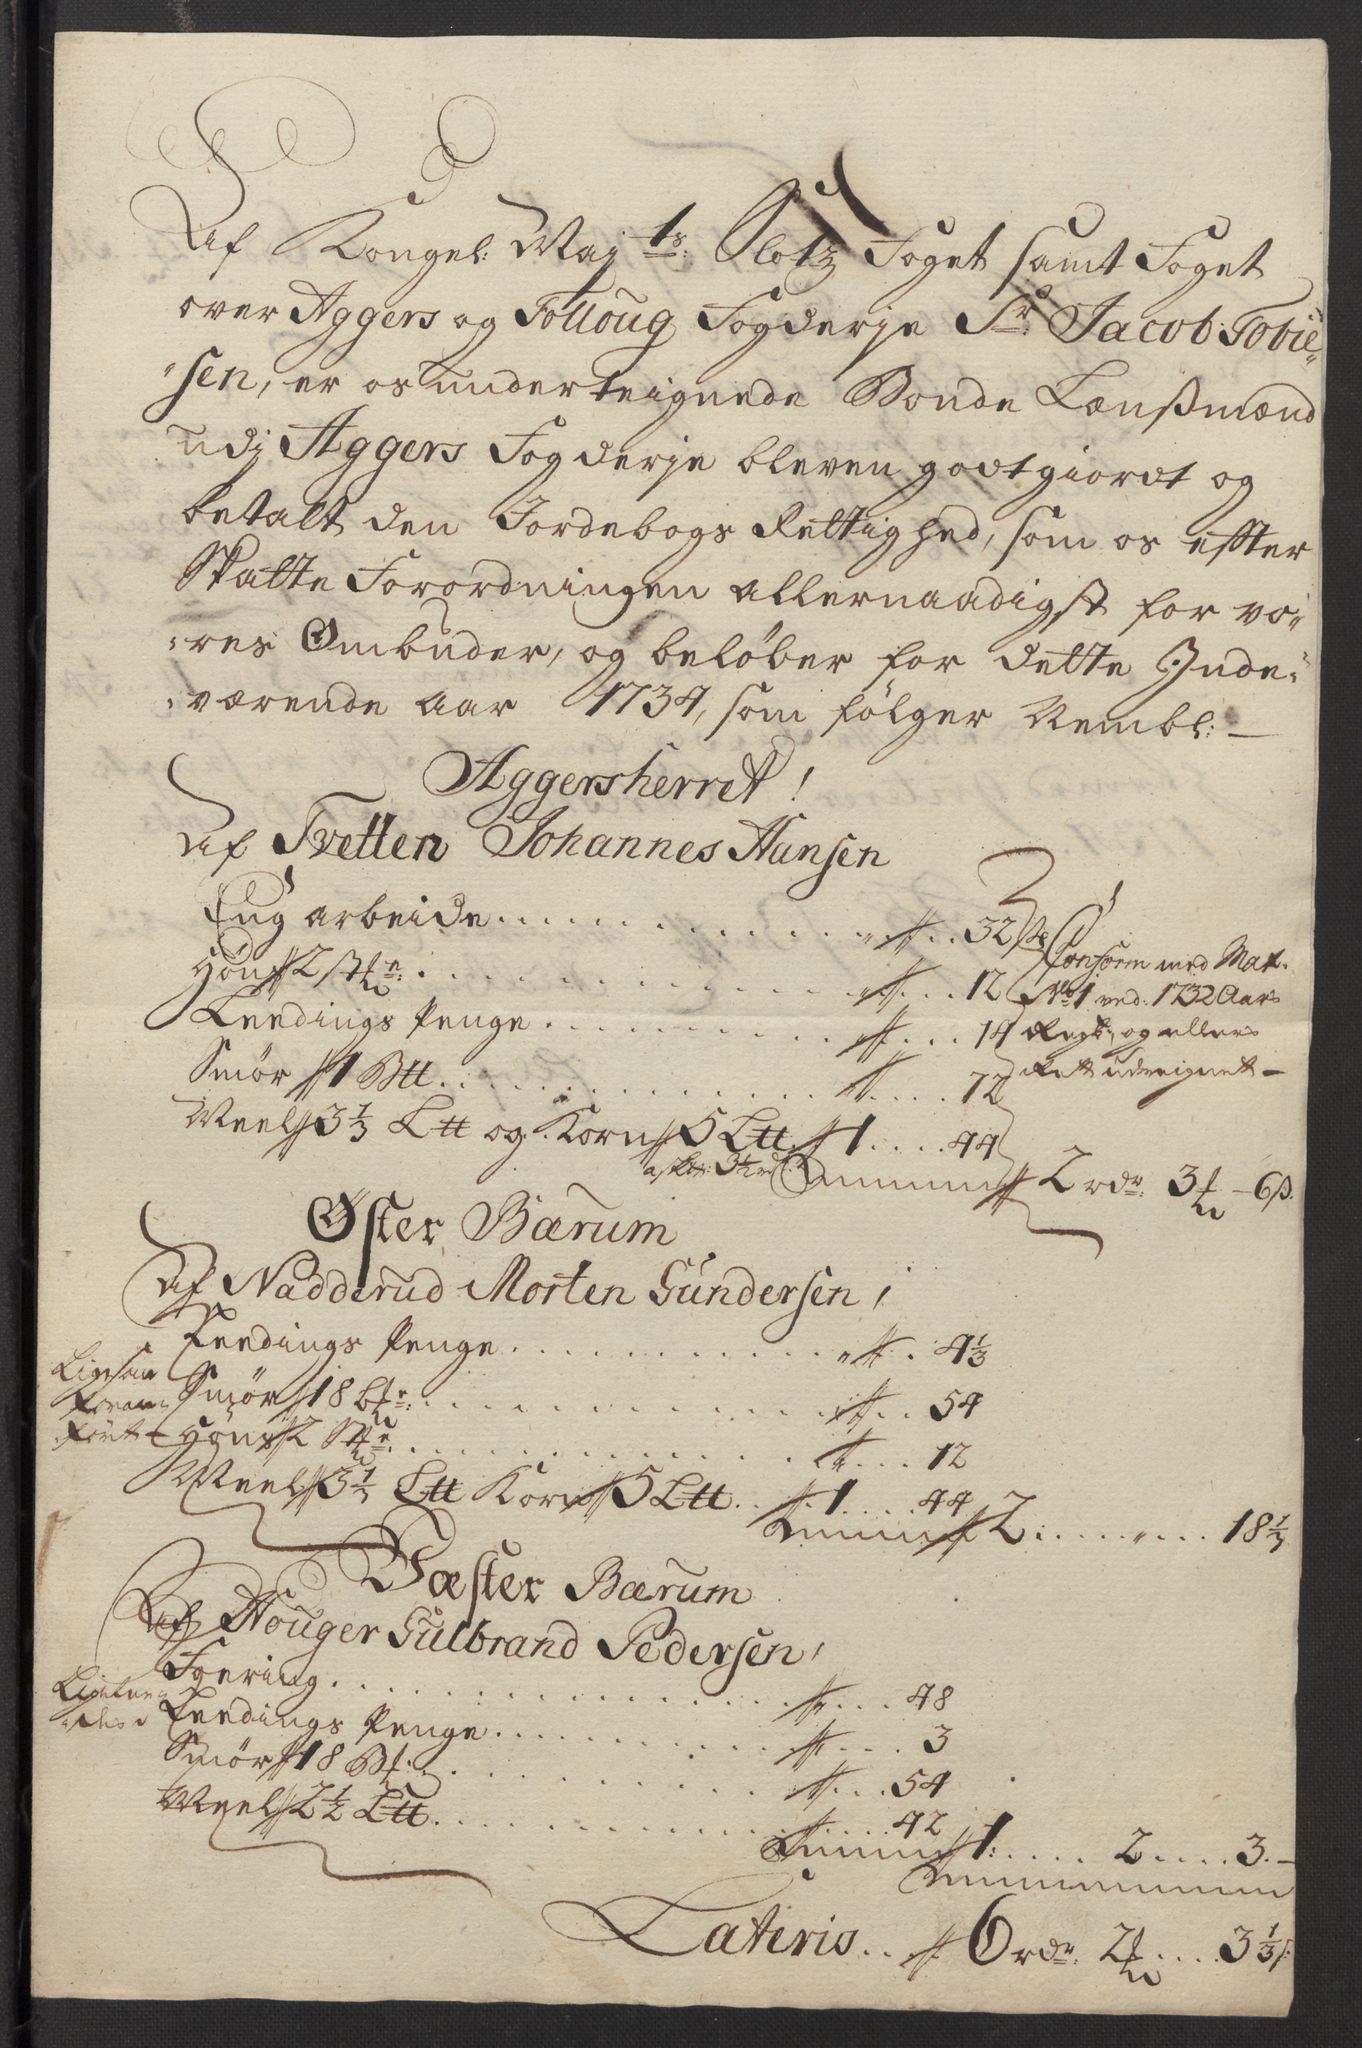 Af Kongel: May ts: Slotz Foget samt Foget
over Aggers og Folloug Fogderje Sr. Jacob Tobie-
sen, er os underteignede Bonde Lænßmænd
udj Aggers Fogderje bleven godtgiordt og
betalt den Jordebogs Rettighed, som os effter
Skatte Forordningen allernaadigst for vo-
res Ombuder, og beløber for dette Inde-
værende Aar 1734, som følger Nembl: —
Aggersherret!
Af Tvetten Johannes Hansen
Eng arbeide . . . . . . . . . . . . . . 32 s
Høns 2 st . . . . . . . . . . . . . . 12
Leedings Penge . . . . . . . . . . . 14
Smør 1 Btt. . . . . . . . . . . . . . 72
Meel 3 1/3 Ltt og Korn 5 Ltt . . 1 . . . . 44
Conform med Mat.
No 1 ved 1732 Aars
Regsk: og ellers
Rett udreignet —
Summa 2 rdr: 3 — 6 s.
Øster Bærum
Af Nadderud Morten Gundersen,
Leedings Penge . . . . . . . . . . . 4 1/3
Smør 18 . . . . . . . . . . . . . . 54
Høns 2 St . . . . . . . . . . . . . 12
Meel 3 1/3 Ltt Korn 5 Ltt . . 1 . . . . 44
Summa 2 : . . . . „ . . . 18 1/3
Væster Bærum
Af Houger Gulbrand Pedersen,
Foering . . . . . . . . . . . . . . 48
Leedings Penge . . . . . . . . . . . 3
Smør 18 . . . . . . . . . . . . . . 54
Meel 2 1/2 Ltt . . . . . . . . . . . 42
Summa 1: . . . . 2 . . . . 3. —
Lateris . . 6 rdr: 2 . . . . 3 1/3 s: